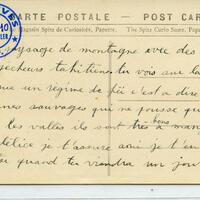 CARTE POSTALE — POST CARD
Magasin Spitz de Curiosités, Papeete. The Spitz Curio Store, Pape
ysage de montagne avec des
pecheurs tahitiens tu vois sur la
un régime de fëi c'est a dire
nes sauvages qui ne pousse que
les vallées ils sont très bons a man
délice je t'assure ami je t'en
quand tu viendra un jour